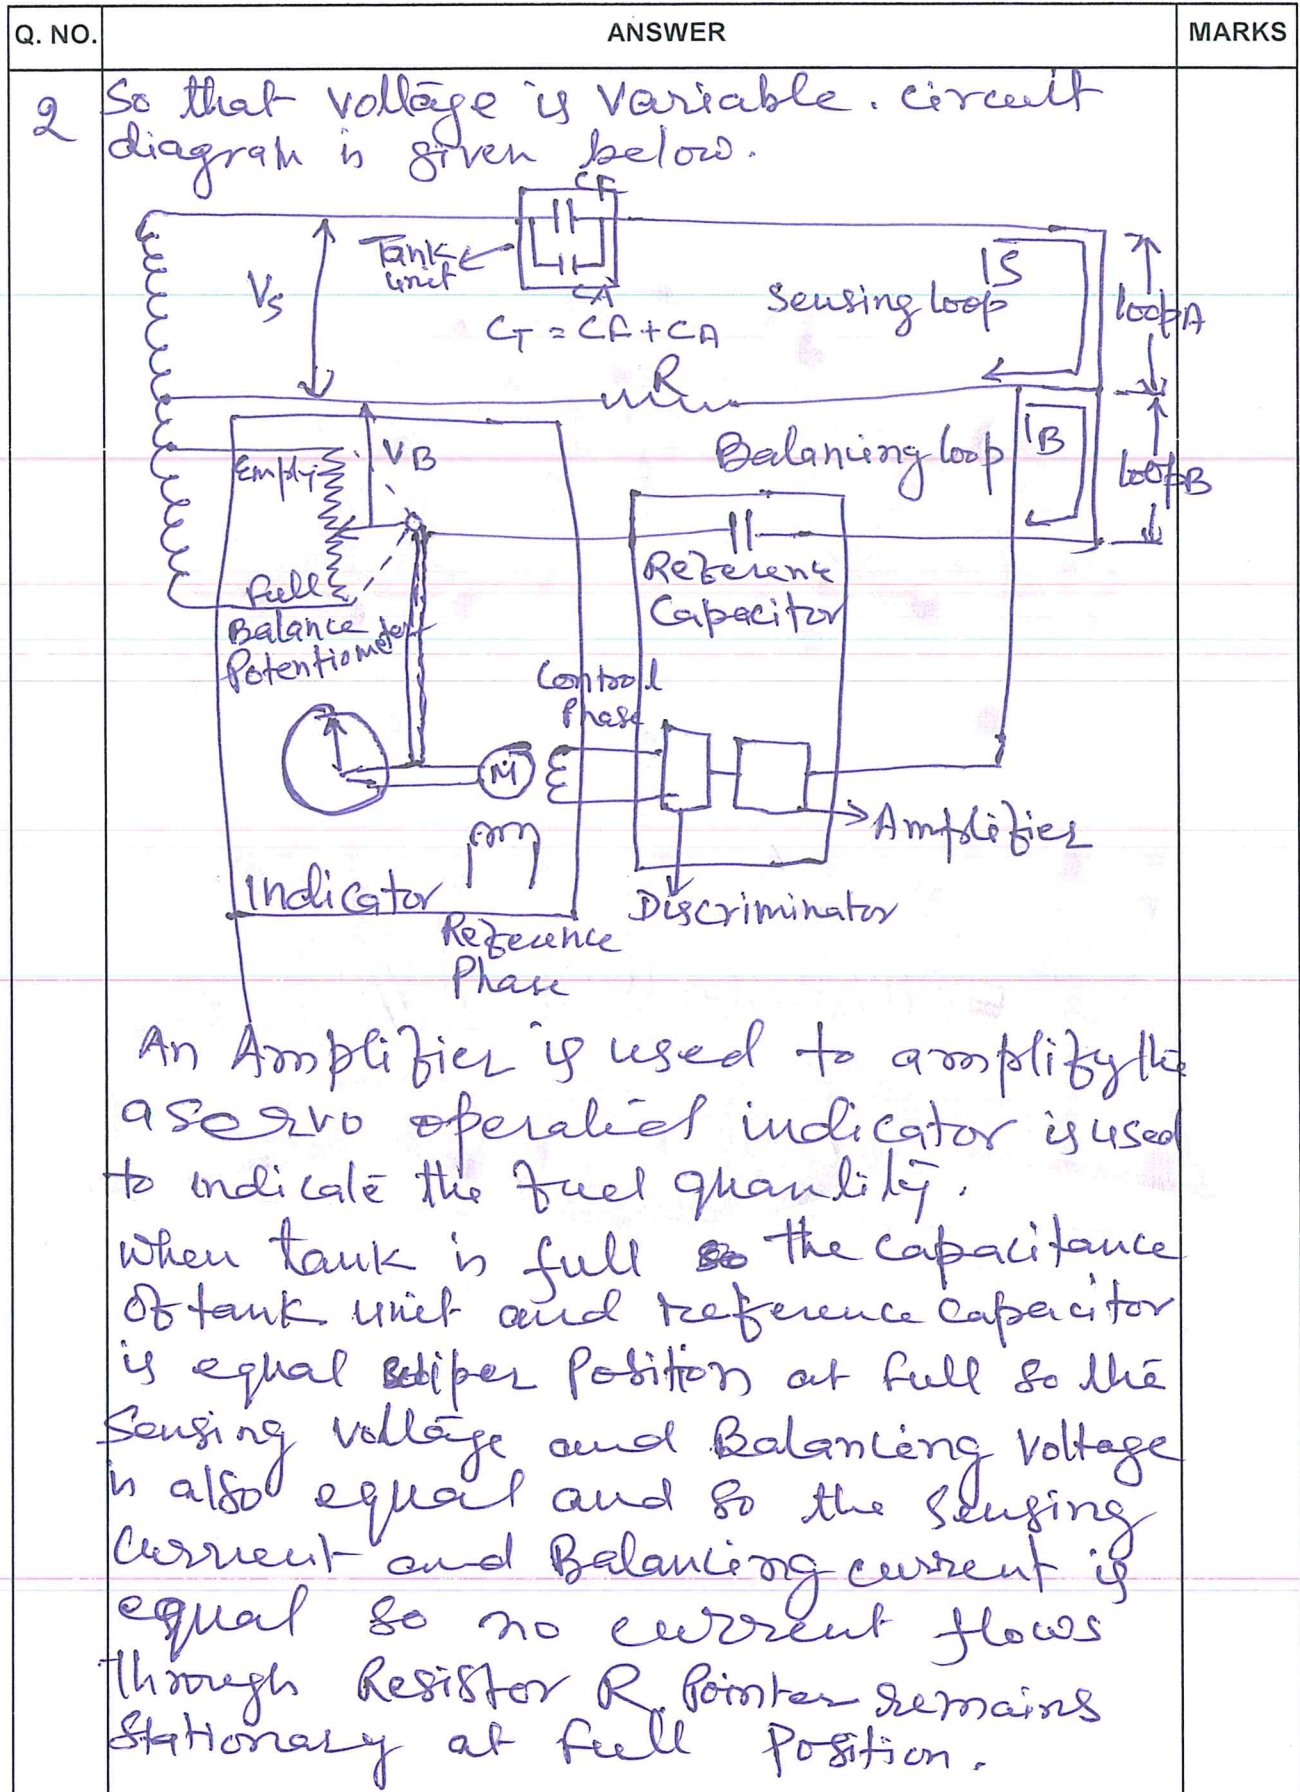 Q. NO. ANSWER MARKS
2 So that voltage is variable. circuit
diagram is given below.
CF
Tank
unit
CA
CT = CF + CA
VS
IS
Sensing loop
loop A
R
VB
Empty
Balancing loop
IB
loop B
Full
Balance
Potentiometer
Reference
Capacitor
Control
Phase
M
Amplifier
Indicator
Discriminator
Reference
Phase
An Amplifier is used to amplify the
a servo operated indicator is used
to indicate the fuel quantity.
when tank is full the capacitance
of tank unit and reference capacitor
is equal wiper Position at full so the
Sensing voltage and Balancing voltage
is also equal and so the sensing
current and Balancing current is
equal so no current flows
through Resistor R. Pointer remains
Stationary at full Position.